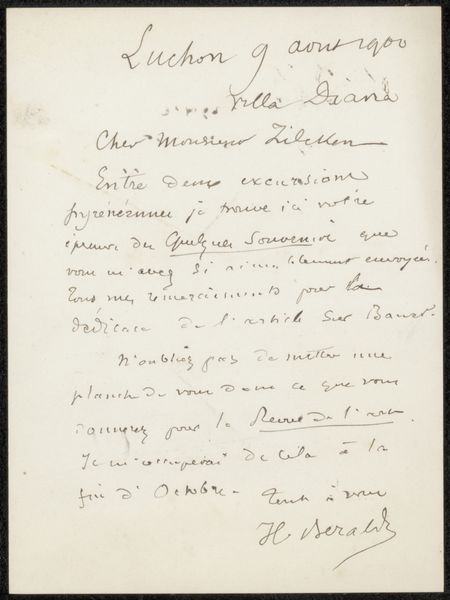 Luchon 9 aout 1900
Villa Diana
Cher Monsieur Zilcken
Entre deux excursions
pyrénéennes je trouve ici votre
épreuve de Quelques Souvenirs que
vous m'avez si aimablement envoyée.
Tous mes remerciements pour la
dédicace de l'article sur Bauer.
N'oubliez pas de mettre une
planche de vous dans ce que vous
donnerez pour la Revue de l'art.
Je m'occuperai de cela à la
fin d'Octobre. tout à vous
H Beraldi